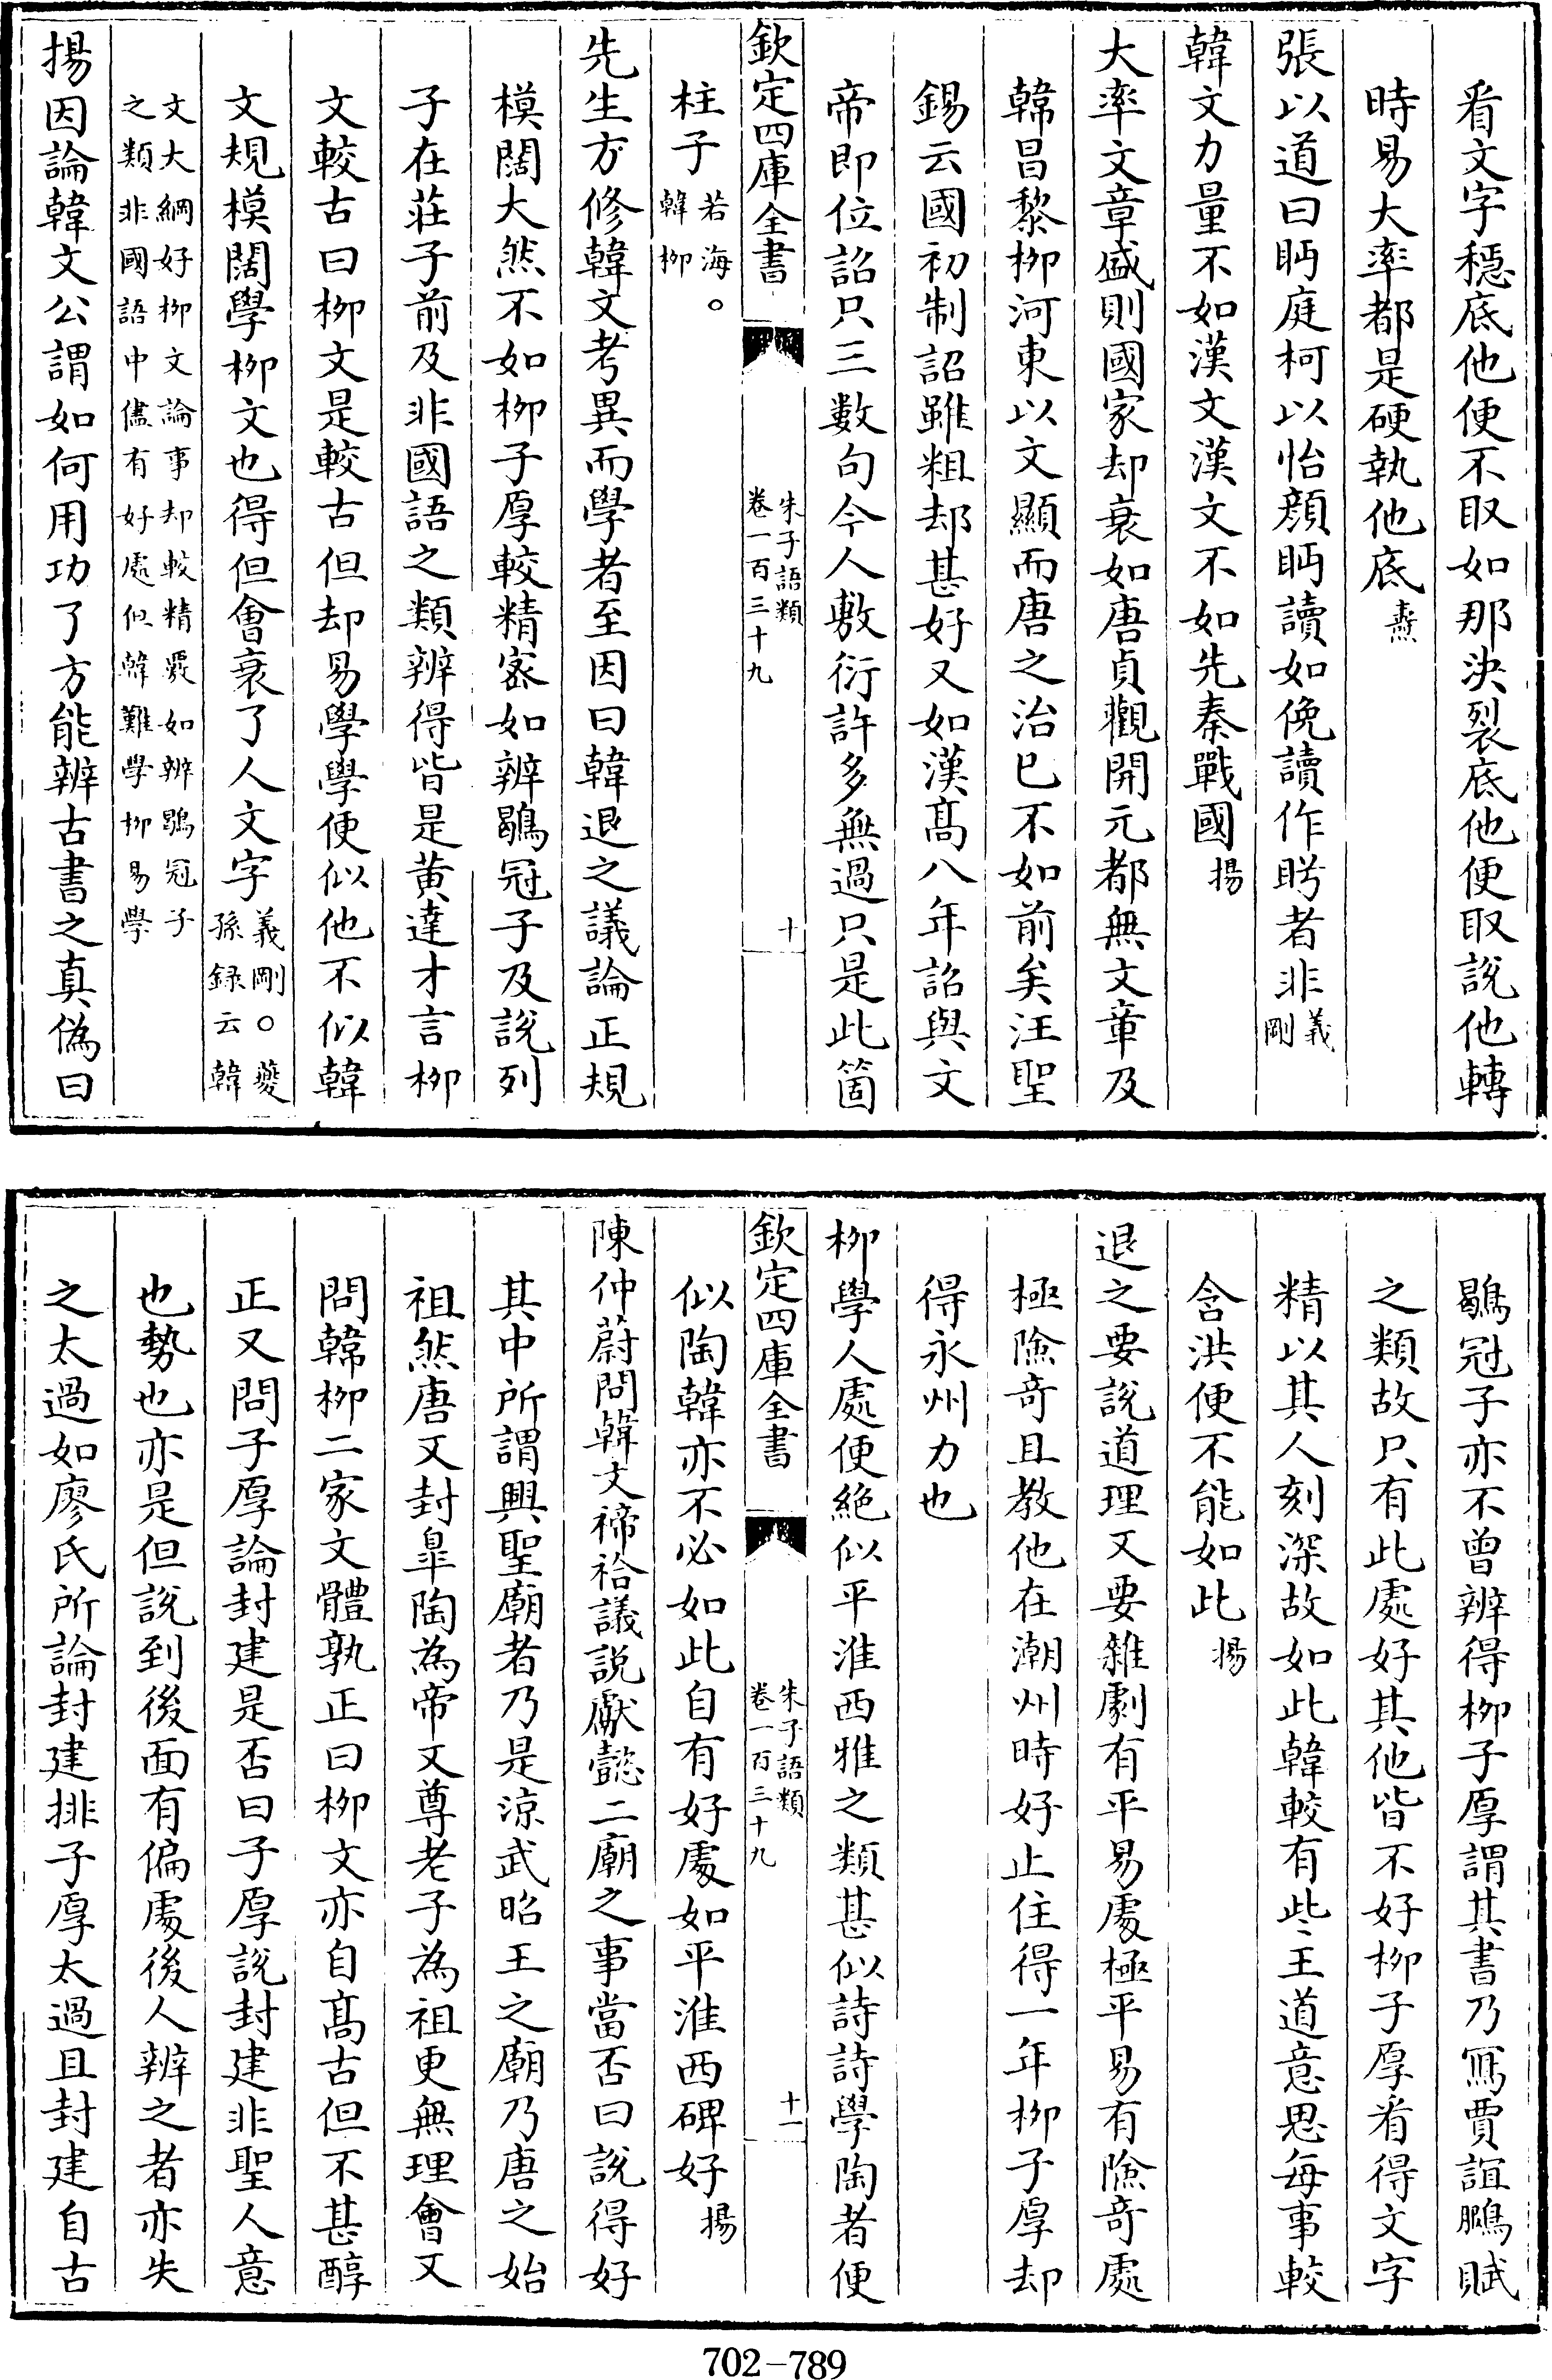 看文字穩底他便不取如那決裂底他便取說他轉
時易大率都是硬執他底燾
張以道曰眄庭柯以怡顔眄讀如俛讀作盻者非義剛
韓文力量不如漢文漢文不如先秦戰國揚
大率文章盛則國家却衰如唐貞觀開元都無文章及
韓昌黎柳河東以文顯而唐之治已不如前矣汪聖
錫云國初制詔雖粗却甚好又如漢髙八年詔與文
帝即位詔只三數句今人敷衍許多無過只是此箇
欽定四庫全書
朱子語類
卷一百三十九
十
柱子若海。
韓柳
先生方修韓文考異而學者至因曰韓退之議論正規
模闊大然不如柳子厚較精宻如辨鶡冠子及說列
子在莊子前及非國語之類辨得皆是黄達才言柳
文較古曰柳文是較古但却易學學便似他不似韓
文規模闊學柳文也得但會衰了人文字義剛○夔
孫録云韓
文大綱好柳文論事却較精覈如辨鶡冠子
之類非國語中儘有好處但韓難學柳易學
揚因論韓文公謂如何用功了方能辨古書之真偽曰
鶡冠子亦不曾辨得柳子厚謂其書乃寫賈誼鵩賦
之類故只有此處好其他皆不好柳子厚看得文字
精以其人刻深故如此韓較有些王道意思每事較
含洪便不能如此揚
退之要說道理又要雜劇有平易處極平易有險奇處
極險奇且教他在潮州時好止住得一年柳子厚却
得永州力也
柳學人處便絶似平淮西雅之類甚似詩詩學陶者便
欽定四庫全書
朱子語類
卷一百三十九
十一
似陶韓亦不必如此自有好處如平淮西碑好揚
陳仲蔚問韓文禘祫議說獻懿二廟之事當否曰說得好
其中所謂興聖廟者乃是涼武昭王之廟乃唐之始
祖然唐又封臯陶為帝又尊老子為祖更無理會又
問韓柳二家文體孰正曰柳文亦自髙古但不甚醇
正又問子厚論封建是否曰子厚說封建非聖人意
也勢也亦是但說到後面有偏處後人辨之者亦失
之太過如廖氏所論封建排子厚太過且封建自古
702-789